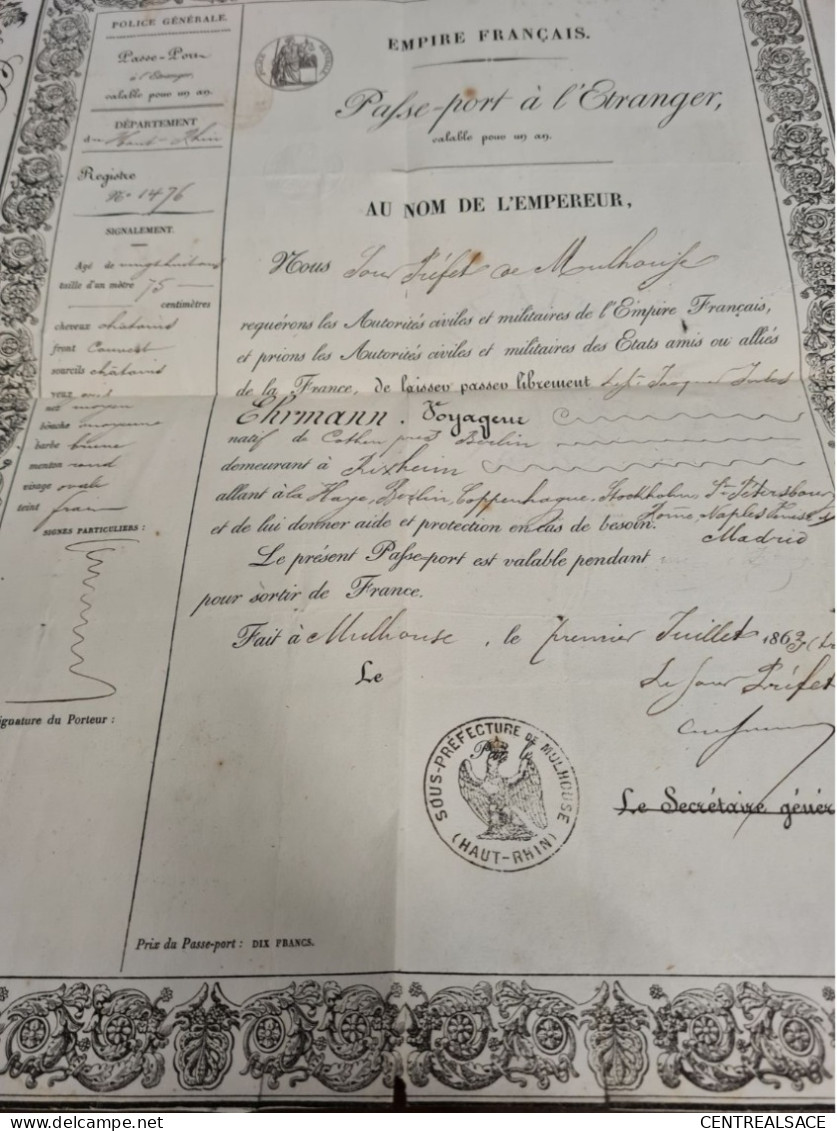 POLICE GÉNÉRALE.
Passe-Port
à l'Etranger,
valable pour un an.
DÉPARTEMENT
du Haut-Rhin
Registre
N° 1476
SIGNALEMENT.
Agé de vingt huit ans
taille d'un mètre 75
centimètres
cheveux châtains
front Couvert
sourcils châtains
yeux
nez moyen
bouche moyenne
barbe brune
menton rond
visage ovale
teint
SIGNES PARTICULIERS :
ignature du Porteur :
EMPIRE FRANÇAIS.
Passe-port à l'Etranger,
valable pour un an.
AU NOM DE L'EMPEREUR,
Nous Sous Préfet de Mulhouse
requérons les Autorités civiles et militaires de l'Empire Français,
et prions les Autorités civiles et militaires des Etats amis ou alliés
de la France, de laisser passer librement Jacques
Ehrmann, Voyageur
natif de près Berlin
demeurant à Rixheim
allant à la Haye, Berlin, Coppenhague, Stockholm, St Petersbour
Rome, Naples
et de lui donner aide et protection en cas de besoin.
Madrid
Le présent Passe-port est valable pendant
pour sortir de France.
Fait à Mulhouse, le premier Juillet 186
Le
Le Sous Préfet
Par le
SOUS-PRÉFECTURE DE MULHOUSE
(HAUT-RHIN)
Le Secrétaire génér
Prix du Passe-port : DIX FRANCS.
CENTREALSACE